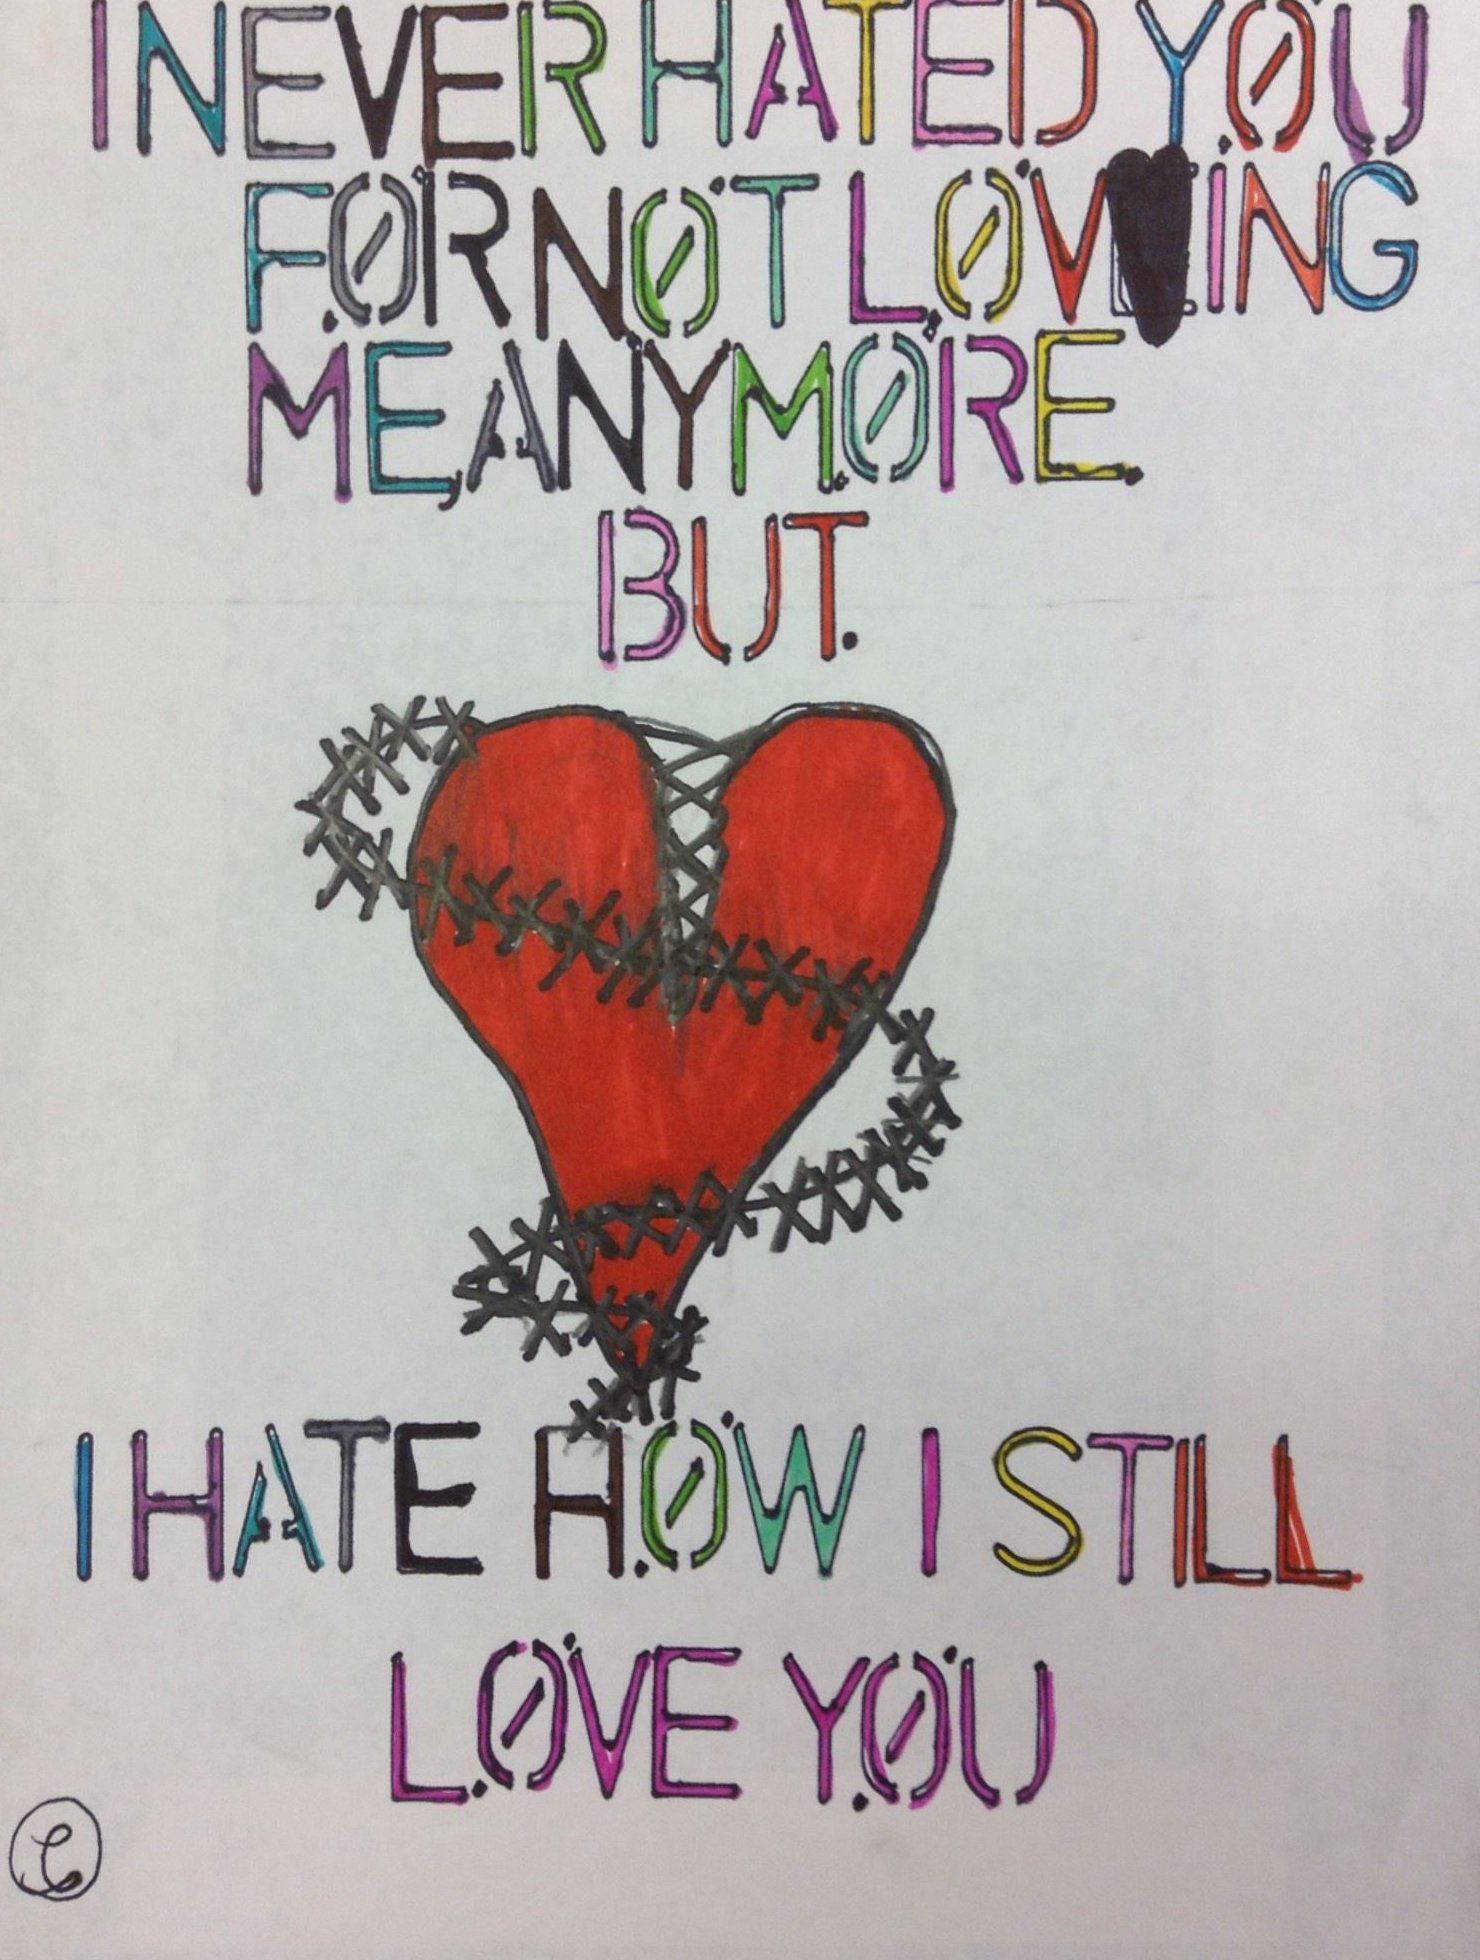 I NEVER HATED YOU
FOR NOT LOVING
ME, ANYMORE.
BUT.
I HATE HOW I STILL
LOVE YOU
C